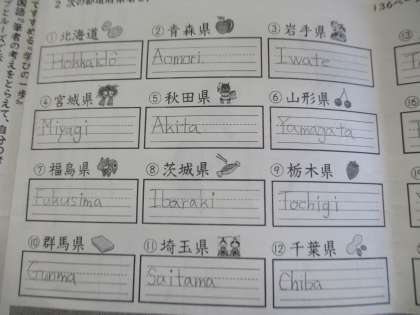 2 次の都道府県名を
136ペー
①北海道 ②青森県 ③岩手県
Hokkaidō Aomori Iwate
④宮城県 ⑤秋田県 ⑥山形県
Miyagi Akita Yamagata
⑦福島県 ⑧茨城県 ⑨栃木県
Fukusima Ibaraki Tochigi
⑩群馬県 ⑪埼玉県 ⑫千葉県
Gunma Saitama Chiba
⑬